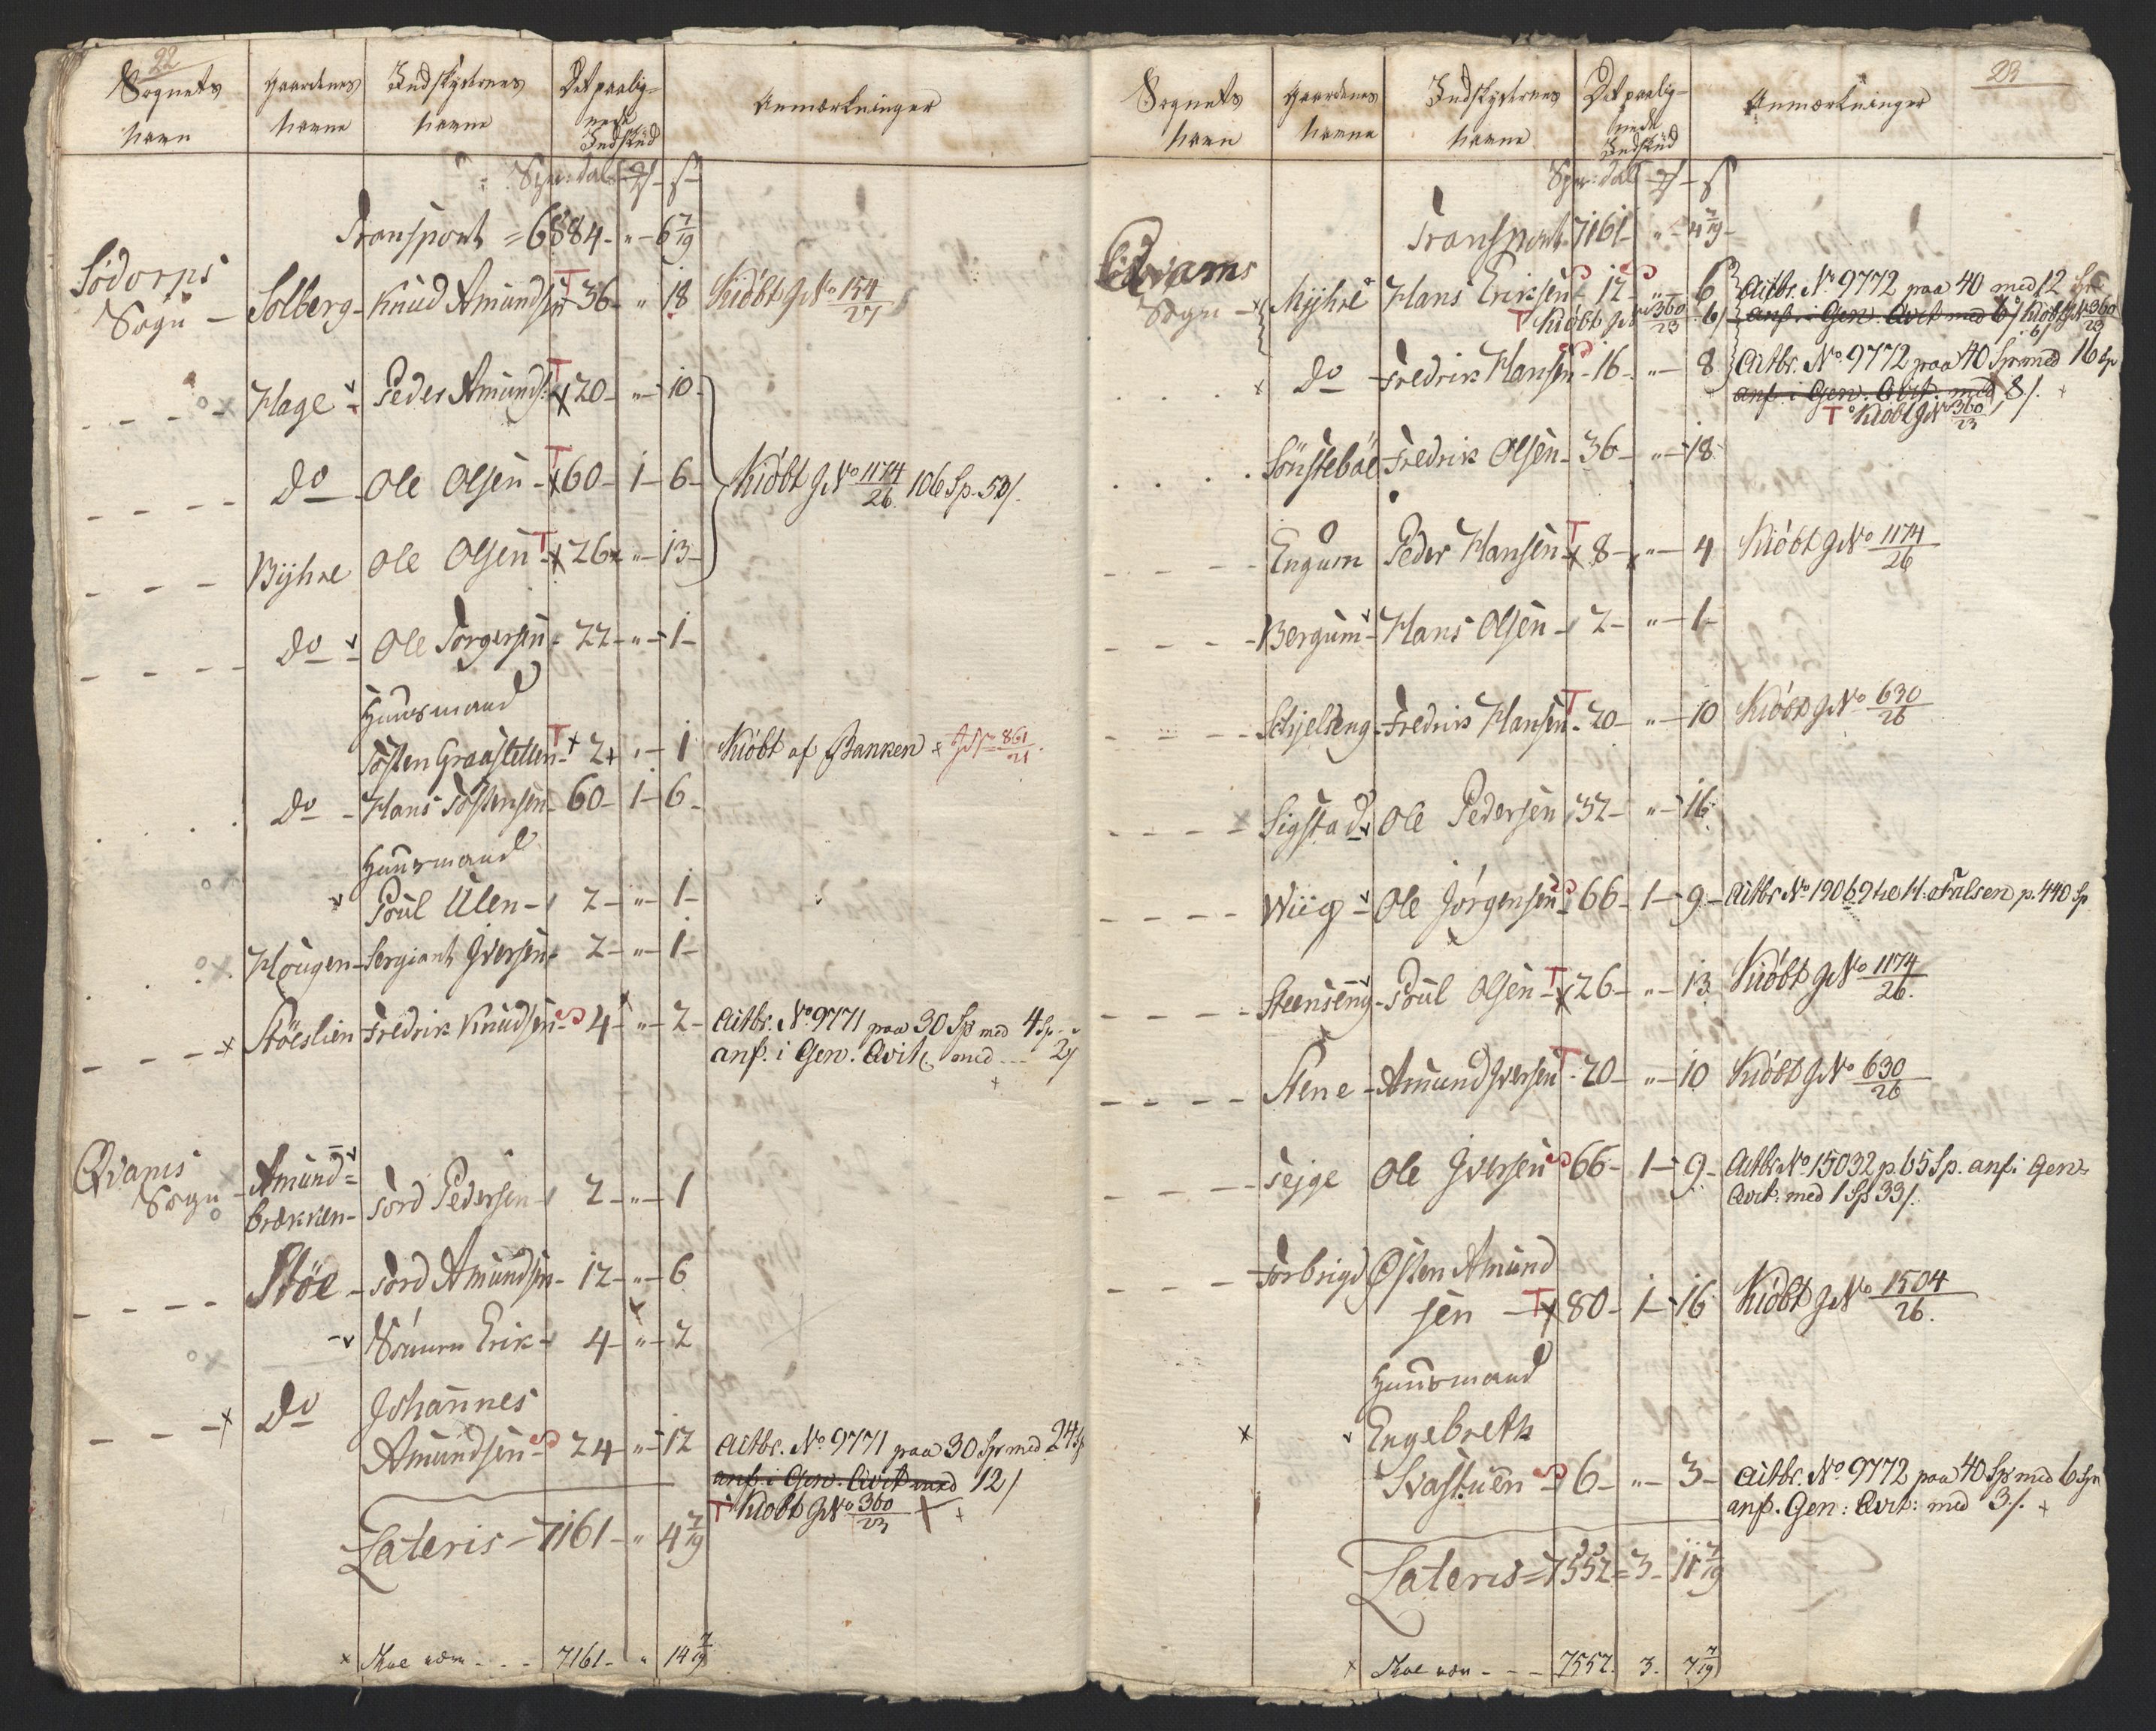 22
Sognets Navn | Gaardenes Navne | Indskydernes Navne | Det paalignede Indskud | Anmærkninger
Spr: dal | ℔ | s
Transport = 6884 - „ - 6 7/19
Södorps Sogn - Solberg - Knud Amundsen T 36 - „ 18 Kiöbt J N° 154/27
Hage - Peder Amunds: T x 20 - „ - 10
do - Ole Olsen - T x 60 - 1 - 6 - Kiöbt J N° 1174/26 106 Sp. 53 s.
Byhre Ole Olsen - T x 26 x „ - 13 -
do - Ole Torgersen - 22 - „ - 1 -
Huusmand
Tosten Graasletten T + 2 + „ - 1 Kiöbt af Banken x J N° 861/21
do - Hans Tostensen - 60 - 1 - 6 -
Huusmand
Poul Ulen - 2 - „ - 1 -
Hougen - Sergiant Iversen - 2 - „ - 1 -
x Stöeslien Fredrik Knudsen - 4 - „ - 2 - Aitbr. N° 9771 paa 30 Sp med 4 Sp.
anf. i Gen. Qvit. med --- 2 s
x
Qvams Sogn o - Amund=
brækken - Tord Pedersen - 2 - „ - 1
Stöe - Tord Amundsen - 12 - „ - 6
Erik - 4 - „ - 2
x do Johannes
Amundsen - 24 - „ - 12 Aitbr. N° 9771 paa 30 Sp med 24 Sp
anf. i Gen. Qvit med 12 s
T Kiobt J N° 360/23 +
Lateris - 7161 - „ 4 7/19
x Skal være - - - 7161 - „ 14 7/19
23
Sognets Navn | Gaardenes Navne | Indskydernes Navne | Det paalignede Indskud | Anmærkninger
Spr: dal - ℔ - s
Transport 7161 - „ - 4 7/19 -
Qvams Sogn - x Myhre Hans Eriksen - 12 - „ - 6 Aitbr. N° 9772 paa 40 med 12 Sp
T Kiöbt J N° 360/23 6 s anf. i Gen. Qvit med 6 s Kiöbt J N° 360/23
6 s
x do - Fredrik Hansen - 16 - „ - 8 Aitbr. N° 9772 paa 40 Spr med 16 Sp
anf. i Gen. Qvit. med 8 s. x
T Kiöbt J N° 360/23
Sönsteböe Fredrik Olsen - 36 - „ - 18
Engum Peder Hansen T x 8 - x „ - 4 Kiöbt J N° 1174/26
Bergum - Hans Olsen - 2 - „ - 1 -
Schjelseng - Fredrik Hansen T - 20 - „ - 10 Kiöbt J N° 630/26
x Sigstad Ole Pedersen 32 - „ - 16
Wiig - Ole Jörgensen 66 - 1 - 9 - Aitbr N° 19069 H. Falsen p. 440 Sp
Steenseng - Poul Olsen - T x 26 - „ - 13 Kiöbt J N° 1174/26.
Stene - Amund Iversen T - 20 - „ - 10 Kiöbt J N° 630/26
Tejge Ole Iversen 66 - 1 - 9 - Aitbr N° 15032 p. 65 Sp. anf. i Gen.
Qvit: med 1 Sp 33 s.
Torbrigd Østen Amund
sen - T x 80 - 1 - 16 Kiöbt J N° 1504/26.
Huusmand
x Engebreth
Svastuen - 6 - „ - 3 - Aitbr. N° 9772 paa 40 Sp med 6 Spr
anf. Gen: Qvit: med 3 s. x
Lateris = 7552 = 3 - 11 7/19
x Skal være - - - 7552. 3. 7 7/19